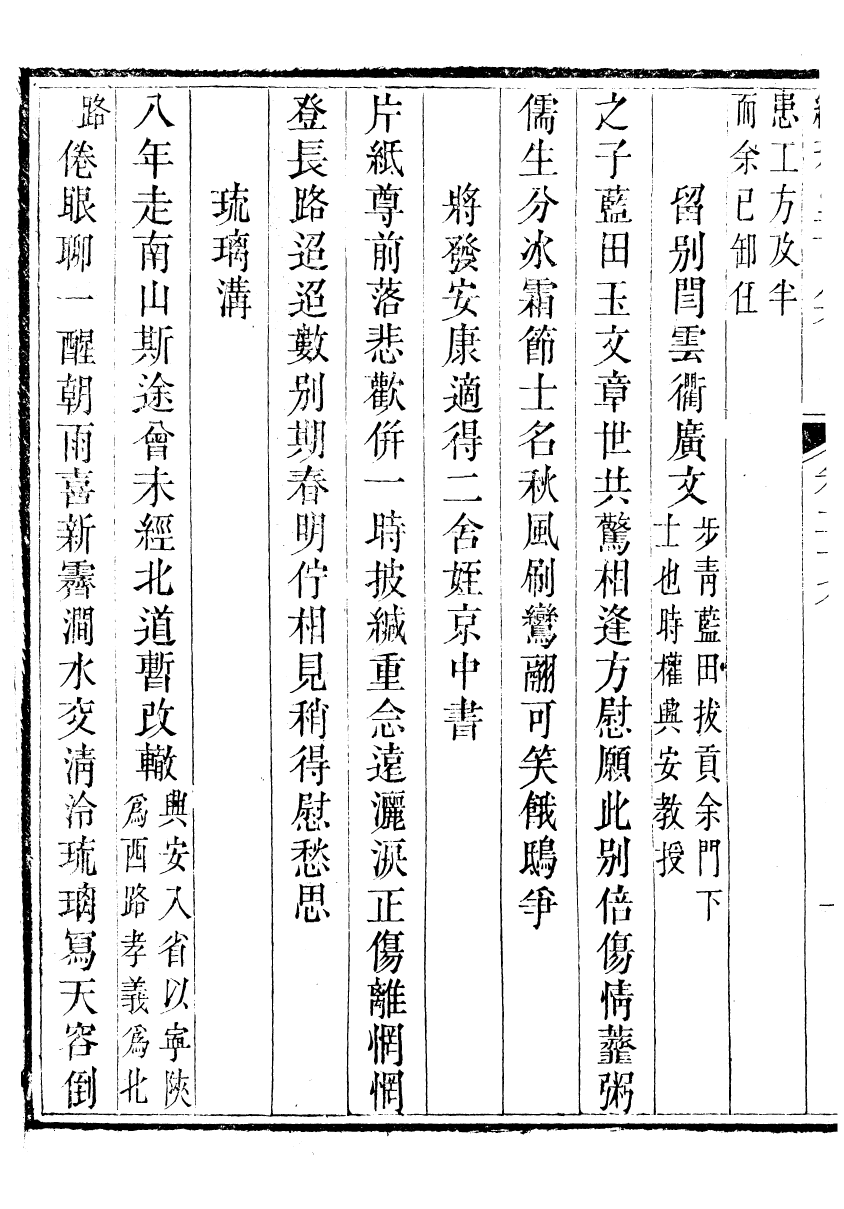 患工方及半
而余已卸任
留別閆雲衢廣文步靑藍田拔貢余門下士也時權興安教授
之子藍田玉文章世共驚相逢方慰願此別倍傷情虀粥
儒生分冰霜節士名秋風刷鸞翮可笑餓鴟爭
將發安康適得二舍姪京中書
片紙尊前落悲歡併一時披緘重念遠灑淚正傷離惘惘
登長路迢迢數別期春明佇相見稍得慰愁思
琉璃溝
八年走南山斯途曾未經北道暫改轍興安入省以寧陝爲西路孝義爲北
路倦眼聊一醒朝雨喜新霽澗水交淸泠琉璃寫天容倒